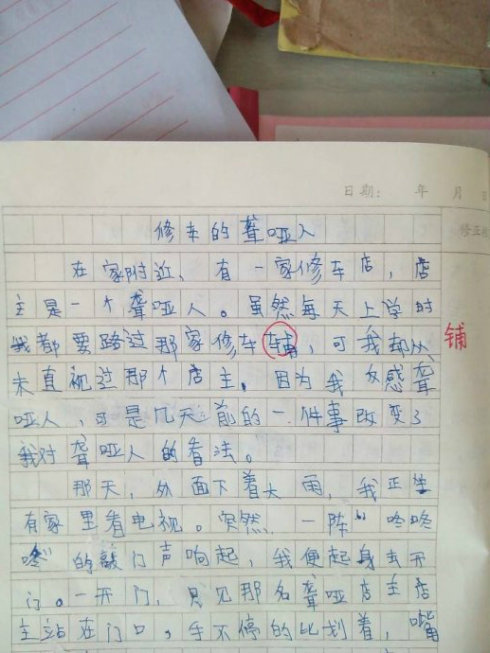 日期: 年 月 日
修正
修车的聋哑人
在家附近，有一家修车店，店
主是一个聋哑人。虽然每天上学时
我都要路过那家修车，可我却从 铺
未直视过那个店主。因为我反感聋
哑人，可是几天前的一件事改变了
我对聋哑人的看法。
那天，外面下着大雨，我正
有家里看电视。突然，一阵“咚咚
咚”的敲门声响起，我便起身去开
门。一开门，只见那名聋哑店主店
主站在门口，手不停的比划着，嘴